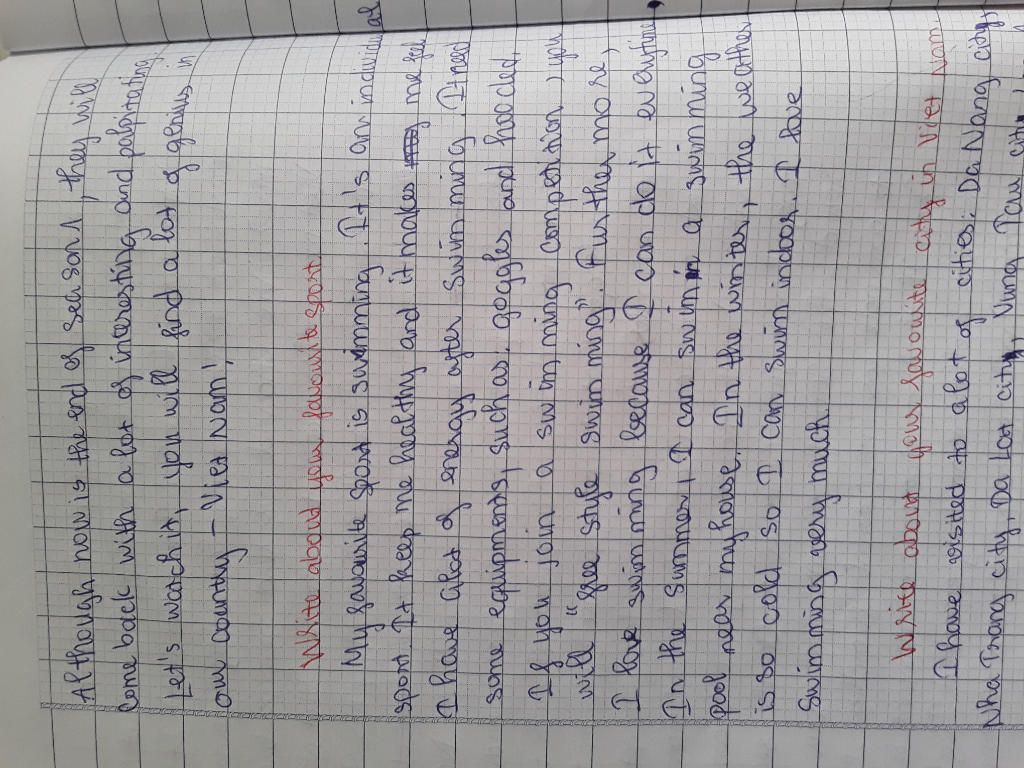 Although now is the end of season 1, they will
come back with a lot of interesting and palpitating.
Let's watch it, you will find a lot of genius in
our country - Viet Nam!
Write about your favourite sport
My favourite sport is swimming. It's an individual
sport. It keep me healthy and it makes me feel
I have alot of energy after swimming. I need
some equipments, such as: goggles and hooded.
If you join a swimming competition, you
will "free style swimming". Furthermore,
I love swimming because I can do it everytime,
In the summer, I can swim in a swimming
pool near my house. In the winter, the weather
is so cold so I can swim indoor. I love
Swimming very much.
Write about your favourite city in Viet Nam.
I have visited to alot of cities: Da Nang city,
Nha Trang city, Da Lat city, Vung Tau city,